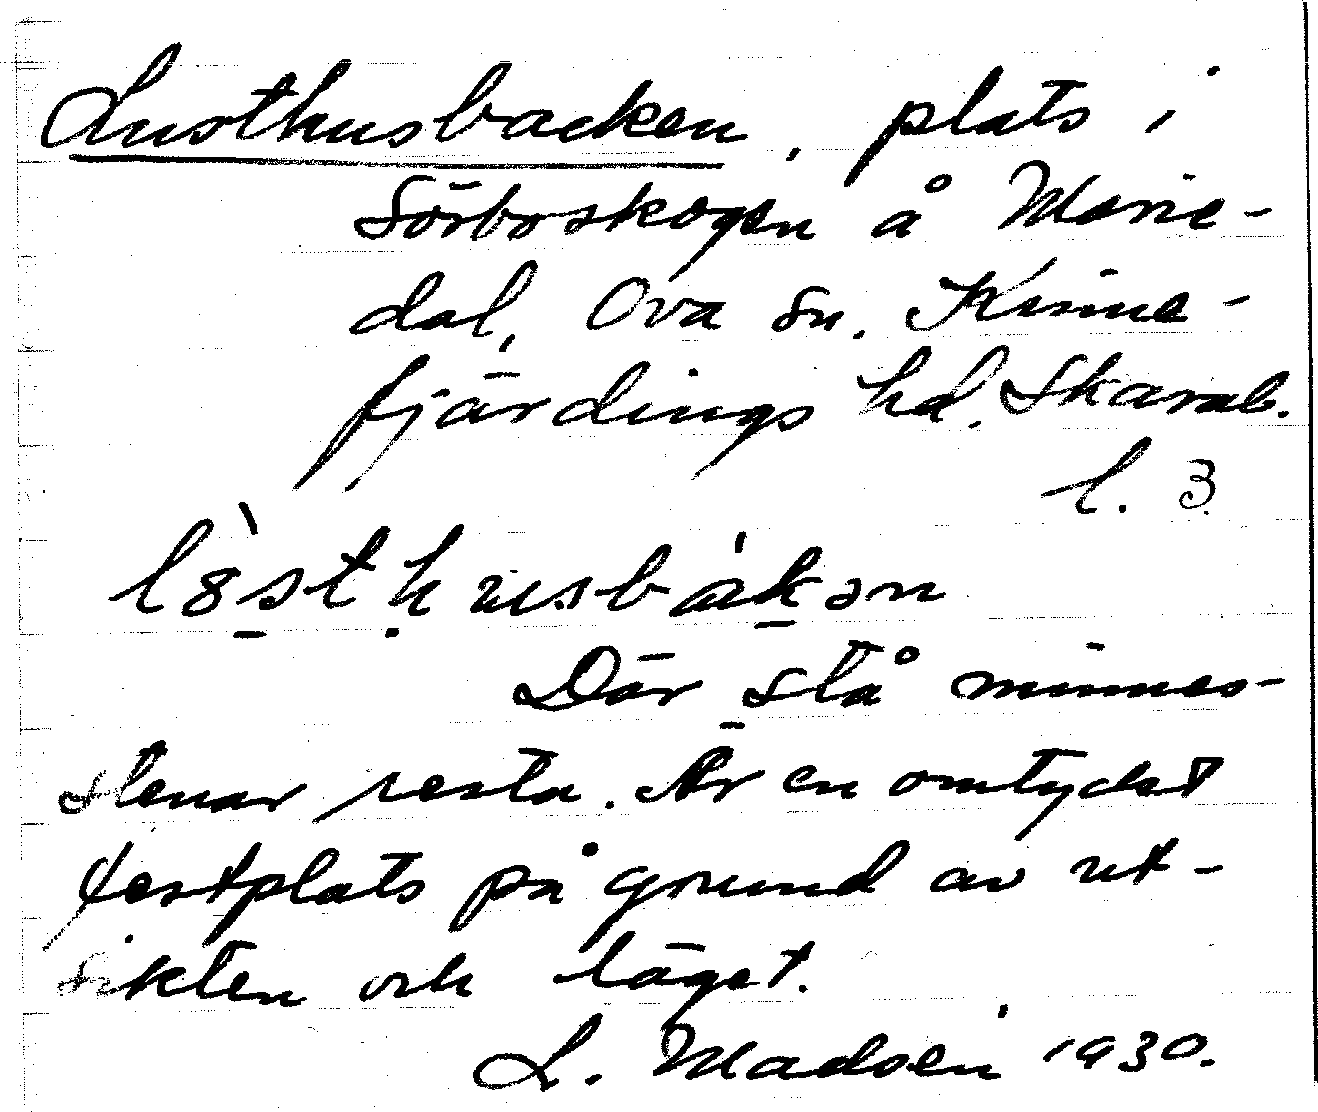 Lusthusbacken, plats i
Sörboskogen å Marie-
dal, Ova sn. Kinne-
fjärdings hd. Skarab.
l. 3
lòsthusbákən
Där stå minnes-
stenar resta. Är en omtyckt
festplats på grund av ut-
sikten och läget.
L. Madsén 1930.